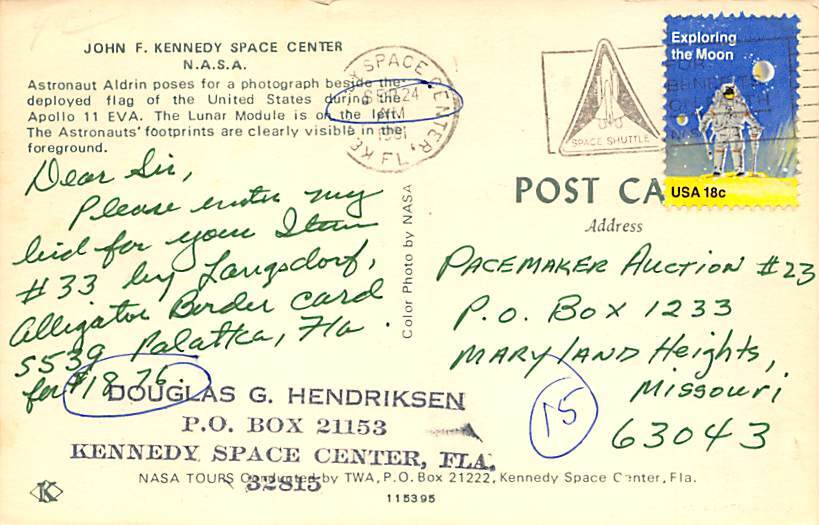 JOHN F. KENNEDY SPACE CENTER
N.A.S.A.
Astronaut Aldrin poses for a photograph beside the
deployed flag of the United States during the
Apollo 11 EVA. The Lunar Module is on the left.
The Astronauts' footprints are clearly visible in the
foreground.
Dear Sir,
Please enter my
bid for your Item
#33 by Langsdorf,
Alligator Border card
S539 Palatka, Fla.
for $18.76.
DOUGLAS G. HENDRIKSEN
P.O. BOX 21153
KENNEDY SPACE CENTER, FLA.
32815
NASA TOURS Conducted by TWA, P.O. Box 21222, Kennedy Space Center, Fla.
115395
K
Color Photo by NASA
SPACE CENTER,
24
AM
1981
FL
SPACE SHUTTLE
Exploring
the Moon
USA 18c
POST CA
Address
PACEMAKER AUCTION #23
P.O. BOX 1233
MARYLAND Heights,
Missouri
63043
15